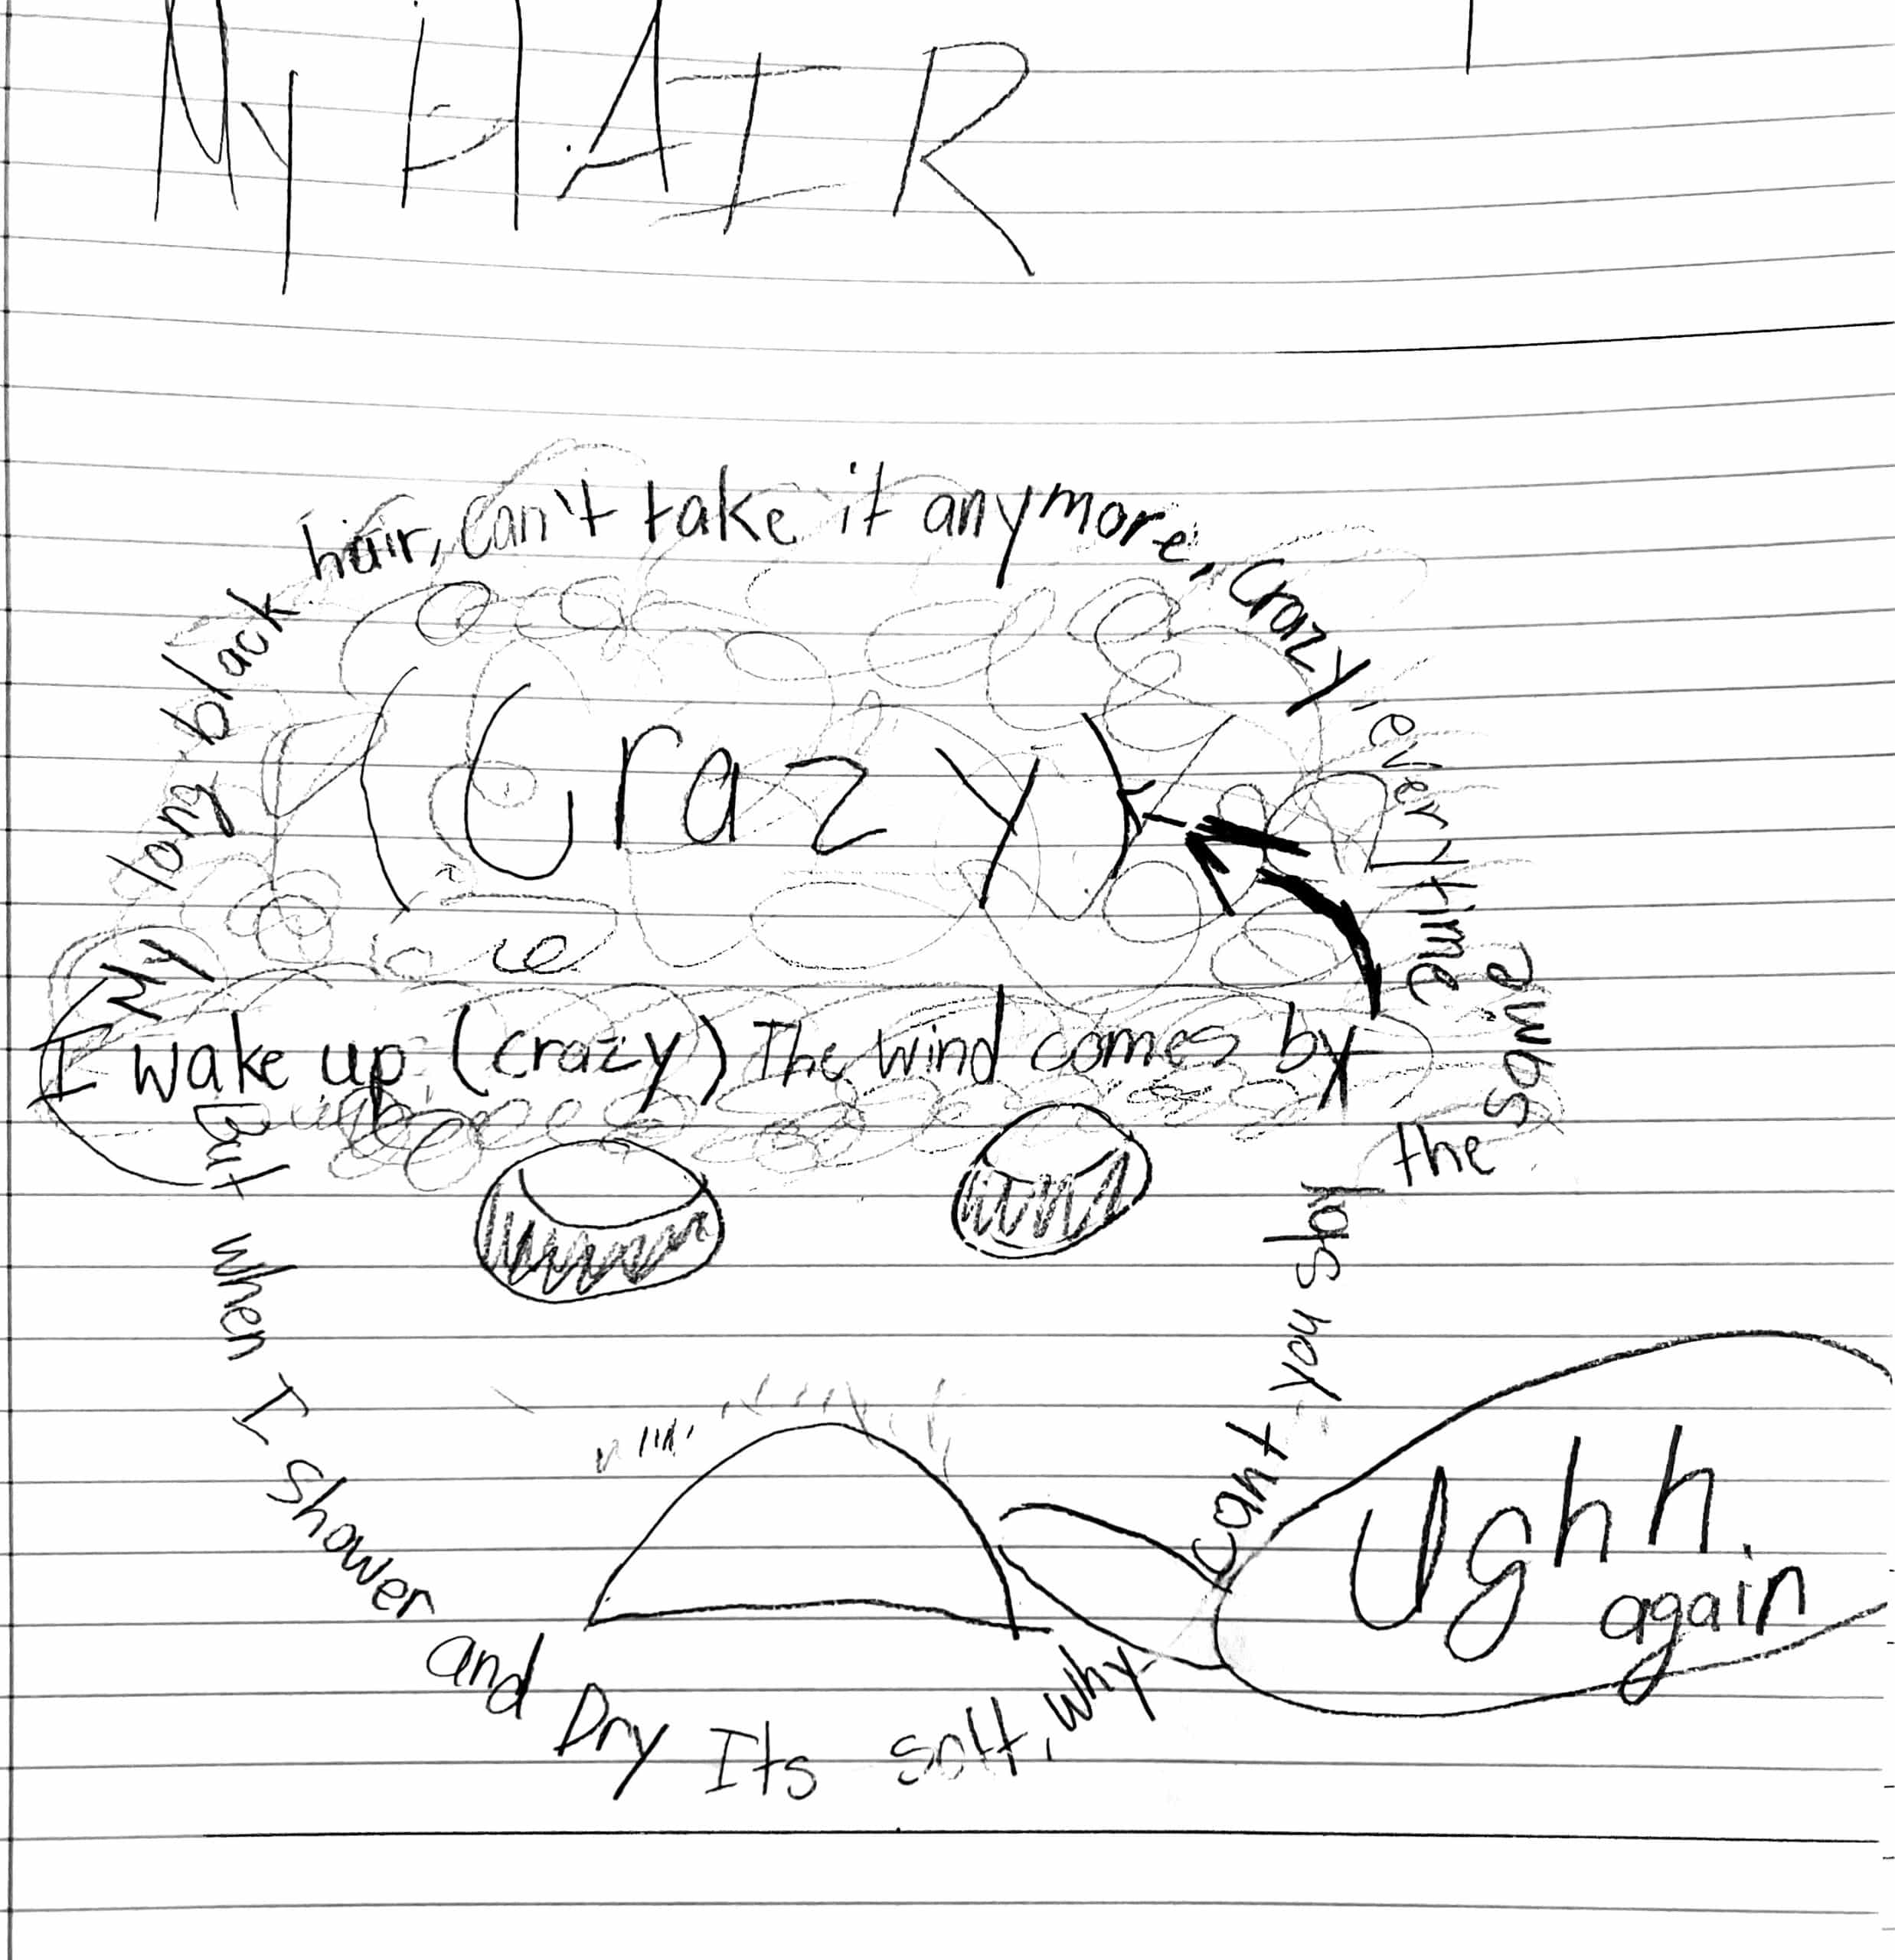 My HAIR
My long black hair, can't take it anymore, crazy, every time
I wake up (crazy) The wind comes by
(Crazy)
But when I shower and Dry Its soft, why cant you stay the same
Ughh.
again